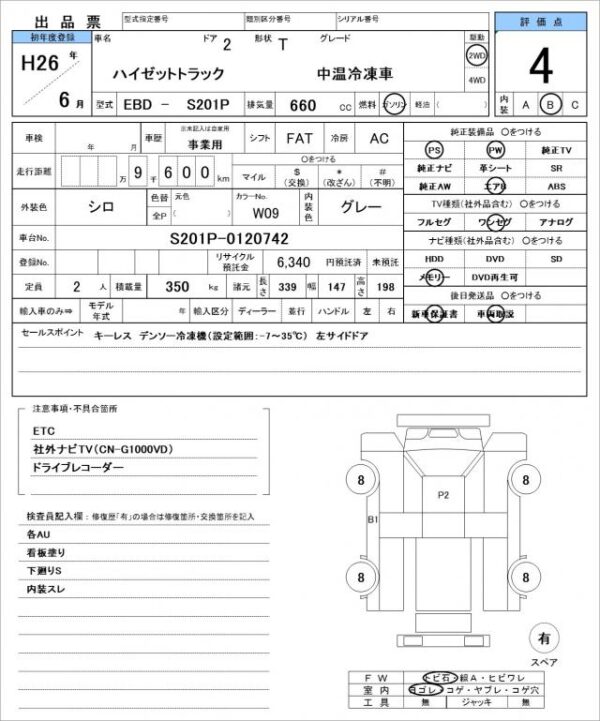 出品票 型式指定番号 類別区分番号 シリアル番号 評価点
初年度登録 車名 ドア 2 形状 T グレード 駆動
H26 年 2WD
ハイゼットトラック 中温冷凍車 4 4WD
6 月 型式 EBD - S201P 排気量 660 cc 燃料 ガソリン 軽油 ( ) 内装 A B C
車検 年 月 車歴 出来記入は自家用 事業用 シフト FAT 冷房 AC 純正装備品 ○をつける
PS PW 純正TV
走行距離 万 9 千 6 0 0 km ○をつける 純正ナビ 革シート SR
マイル $ (交換) * (改ざん) # (不明) 純正AW エアB ABS
外装色 シロ 色替 全P 元色 ( ) カラーNo. W09 内装色 グレー TV種類(社外品含む) ○をつける
フルセグ ワンセグ アナログ
車台No. S201P-0120742 ナビ種類(社外品含む) ○をつける
登録No. リサイクル預託金 6,340 円預託済 未預託 HDD DVD SD
定員 2 人 積載量 350 kg 諸元 長さ 339 幅 147 高さ 198 メモリー DVD再生可
後日発送品 ○をつける
輸入車のみ⇒ モデル年式 年 輸入区分 ディーラー 並行 ハンドル 左 右 新車保証書 車両取説
セールスポイント キーレス デンソー冷凍機(設定範囲:-7~35℃) 左サイドドア
注意事項・不具合箇所
ETC
社外ナビTV(CN-G1000VD)
ドライブレコーダー
検査員記入欄:修復歴「有」の場合は修復箇所・交換箇所を記入
各AU
看板塗り
下廻りS
内装スレ
8 8
P2
B1
8 8
有
スペア
FW トビ石・線A・ヒビワレ
室内 ヨゴレ・コゲ・ヤブレ・コゲ穴
工具 無 ジャッキ 無